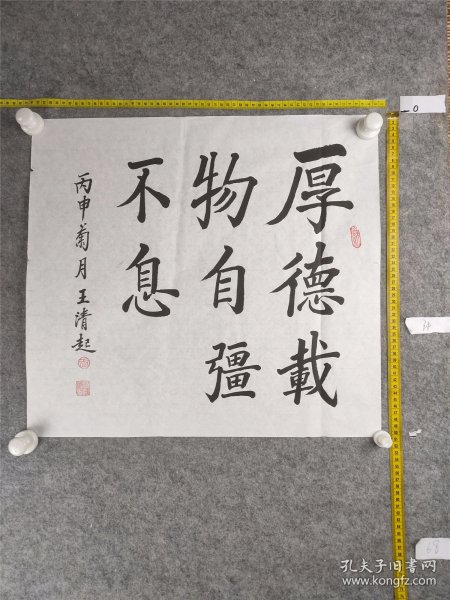 厚德載
物自彊
不息
丙申菊月王清起
0
34
68
孔夫子旧书网
www.kongfz.com